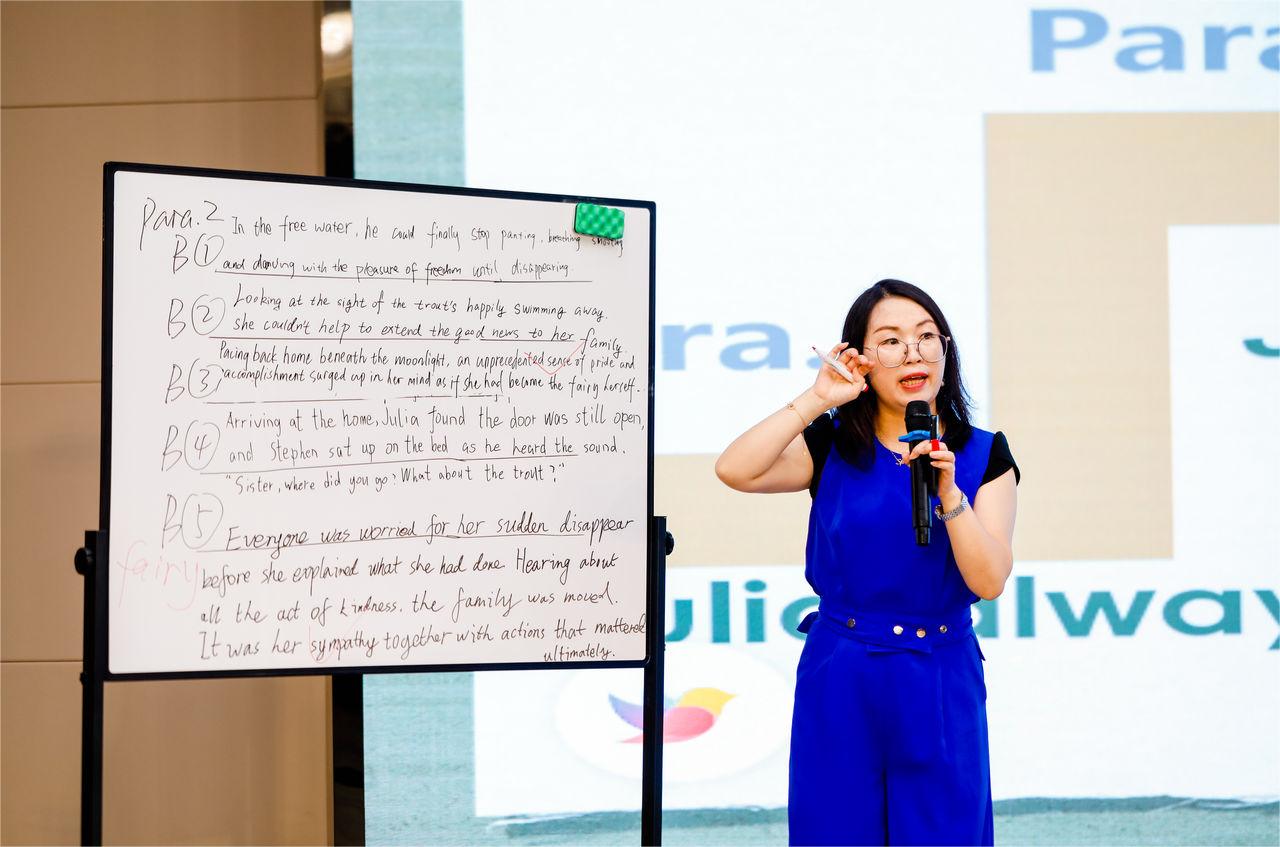 Para.2 In the free water, he could finally stop panting, breathing
B① and dancing with the pleasure of freedom until disappearing.
B② Looking at the sight of the trout's happily swimming away,
she couldn't help to extend the good news to her family
Pacing back home beneath the moonlight, an unprecedented sense of pride and
B③ accomplishment surged up in her mind as if she had become the fairy herself.
Arriving at the home, Julia found the door was still open,
B④ and Stephen sat up on the bed as he heard the sound.
"Sister, where did you go? What about the trout?"
B⑤ Everyone was worried for her sudden disappear
fairy
before she explained what she had done. Hearing about
all the act of kindness, the family was moved.
It was her sympathy together with actions that mattered
ultimately.
Para
ra.
J
ulia alway